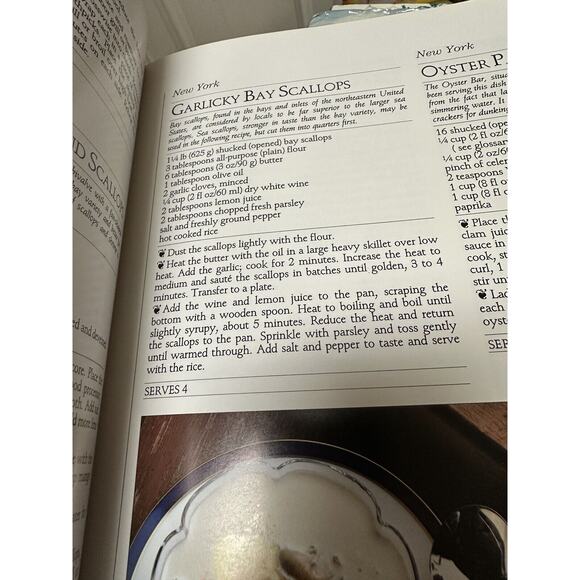 New York
GARLICKY BAY SCALLOPS
Bay scallops, found in the bays and inlets of the northeastern United
States, are considered by locals to be far superior to the larger sea
scallops. Sea scallops, stronger in taste than the bay variety, may be
used in the following recipe, but cut them into quarters first.
1¼ lb (625 g) shucked (opened) bay scallops
3 tablespoons all-purpose (plain) flour
6 tablespoons (3 oz/90 g) butter
1 tablespoon olive oil
2 garlic cloves, minced
¼ cup (2 fl oz/60 ml) dry white wine
2 tablespoons lemon juice
2 tablespoons chopped fresh parsley
salt and freshly ground pepper
hot cooked rice
Dust the scallops lightly with the flour.
Heat the butter with the oil in a large heavy skillet over low
heat. Add the garlic; cook for 2 minutes. Increase the heat to
medium and sauté the scallops in batches until golden, 3 to 4
minutes. Transfer to a plate.
Add the wine and lemon juice to the pan, scraping the
bottom with a wooden spoon. Heat to boiling and boil until
slightly syrupy, about 5 minutes. Reduce the heat and return
the scallops to the pan. Sprinkle with parsley and toss gently
until warmed through. Add salt and pepper to taste and serve
with the rice.
SERVES 4
New York
OYSTER P
The Oyster Bar, situ
been serving this dish
from the fact that la
simmering water. It
crackers for dunking
16 shucked (open
¼ cup (2 fl oz/6
( see glossar
¼ cup (2 oz/60
pinch of celer
2 teaspoons
1 cup (8 fl o
1 cup (8 fl
paprika
Place th
clam juice
sauce in
cook, st
curl, 1
stir un
Lad
each
oyst
SE